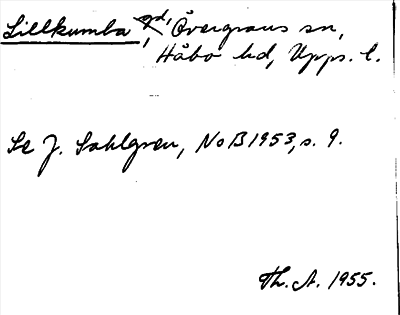 Lillkumba gd, Övergrans sn,
Håbo hd, Upps. l.
Se J. Sahlgren, NoB 1953, s. 9.
Th. A. 1955.